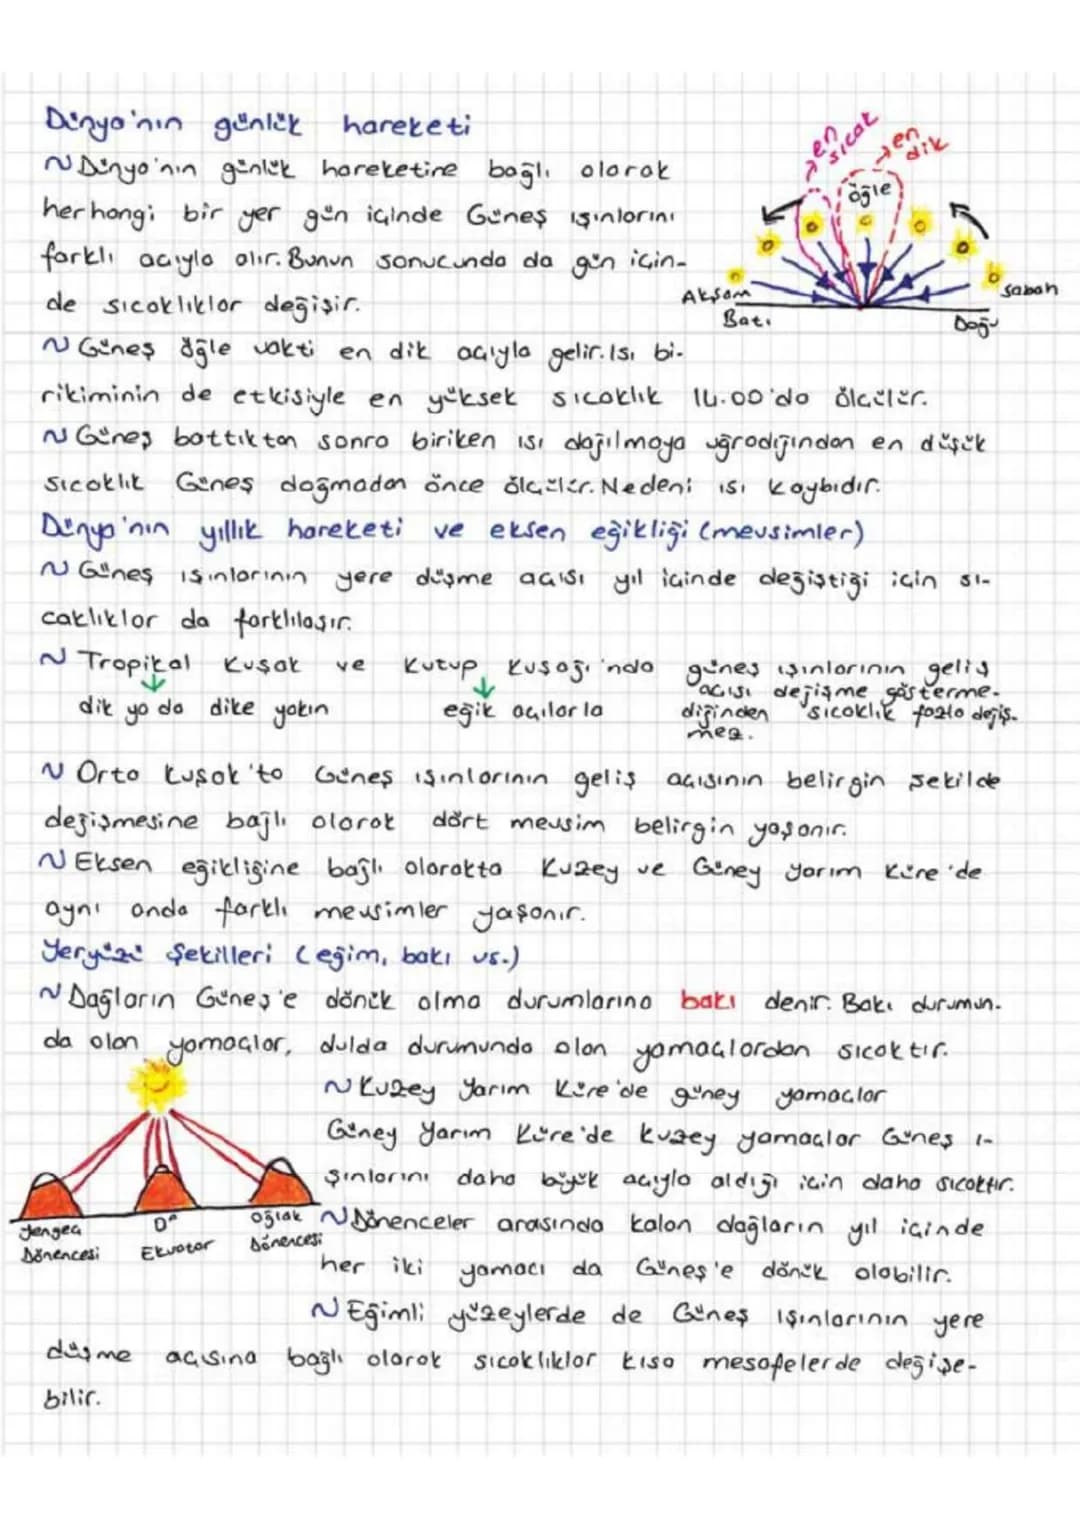 Dünya'nın günlük hareketi
~ Dünya'nın günlük hareketine bağlı olarak
herhangi bir yer gün içinde Güneş ışınlarını
farklı açıyla alır. Bunun sonucunda da gün için-
de sıcaklıklar değişir.
→ en sıcak
→ en dik
öğle
Akşam
sabah
Batı
Doğu
~ Güneş öğle vakti en dik açıyla gelir. Isı bi-
rikiminin de etkisiyle en yüksek sıcaklık 14.00'da ölçülür.
~ Güneş battıktan sonra biriken ısı dağılmaya uğradığından en düşük
sıcaklık Güneş doğmadan önce ölçülür. Nedeni ısı kaybıdır.
Dünya'nın yıllık hareketi ve eksen eğikliği (mevsimler)
~ Güneş ışınlarının yere düşme açısı yıl içinde değiştiği için sı-
caklıklar da farklılaşır.
~ Tropikal Kuşak ve Kutup Kuşağı'nda güneş ışınlarının geliş
açısı değişme gösterme-
dik ya da dike yakın eğik açılarla diğinden sıcaklık fazla değiş-
mez.
~ Orta kuşak'ta Güneş ışınlarının geliş açısının belirgin şekilde
değişmesine bağlı olarak dört mevsim belirgin yaşanır.
~ Eksen eğikliğine bağlı olarakta Kuzey ve Güney Yarım Küre'de
aynı anda farklı mevsimler yaşanır.
Yeryüzü Şekilleri (eğim, bakı vs.)
~ Dağların Güneş'e dönük olma durumlarına bakı denir. Bakı durumun-
da olan yamaçlar, dulda durumunda olan yamaçlardan sıcaktır.
~ Kuzey Yarım Küre'de güney yamaçlar
Güney Yarım Küre'de kuzey yamaçlar Güneş ı-
şınlarını daha büyük açıyla aldığı için daha sıcaktır.
Yengeç Dönencesi
0° Ekvator
Oğlak Dönencesi
~ Dönenceler arasında kalan dağların yıl içinde
her iki yamacı da Güneş'e dönük olabilir.
~ Eğimli yüzeylerde de Güneş ışınlarının yere
düşme açısına bağlı olarak sıcaklıklar kısa mesafelerde değişe-
bilir.